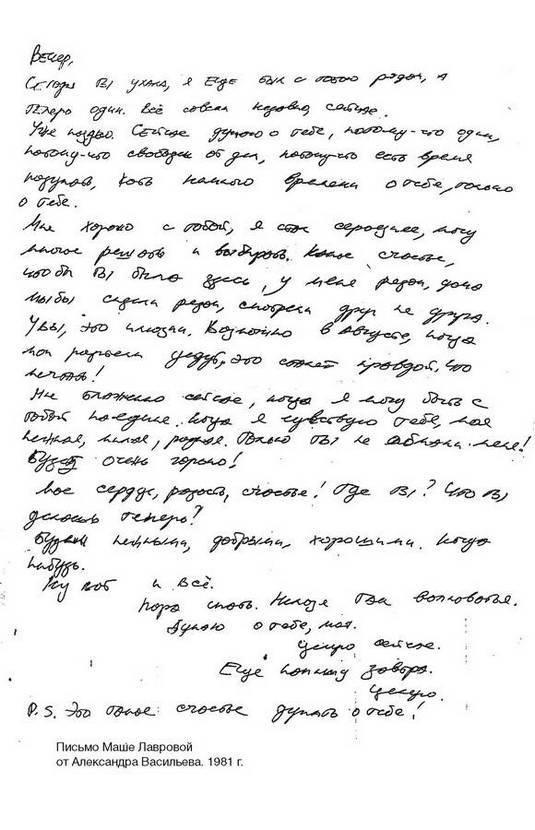 Вечер,
Сегодня ты ушла, я ещё был с тобою рядом, а
теперь один. Всё совсем неровно, сейчас.
Уже поздно. Сейчас думаю о тебе, потому-что один,
потому-что свободен от дел, потому-что есть время
подумать, хоть немного времени о тебе, только
о тебе.
Мне хорошо с тобой, я стал сердечнее, могу
многое решать и выбирать. Какое счастье,
что бы ты была здесь, у меня рядом, дома
мы бы сидели рядом, смотрели друг на друга.
Увы, это иллюзии. Возможно в Августе, когда
мои родители уедут, это станет правдой, что
мечта!
Но сейчас, когда я могу быть с
тобой наедине. Когда я чувствую тебя, моя
нежная, милая, родная. Только ты не обмани меня!
Будет очень горько!
Моё сердце, радость, счастье! Где ты? Что ты
делаешь теперь?
Будем нежными, добрыми, хорошими. Когда
нибудь.
Ну вот и всё.
Пора спать. Нельзя так волноваться.
Думаю о тебе, моя.
Целую сейчас.
Ещё напишу завтра.
Целую.
P.S. Это такое счастье думать о тебе!
Письмо Маше Лавровой
от Александра Васильева. 1981 г.